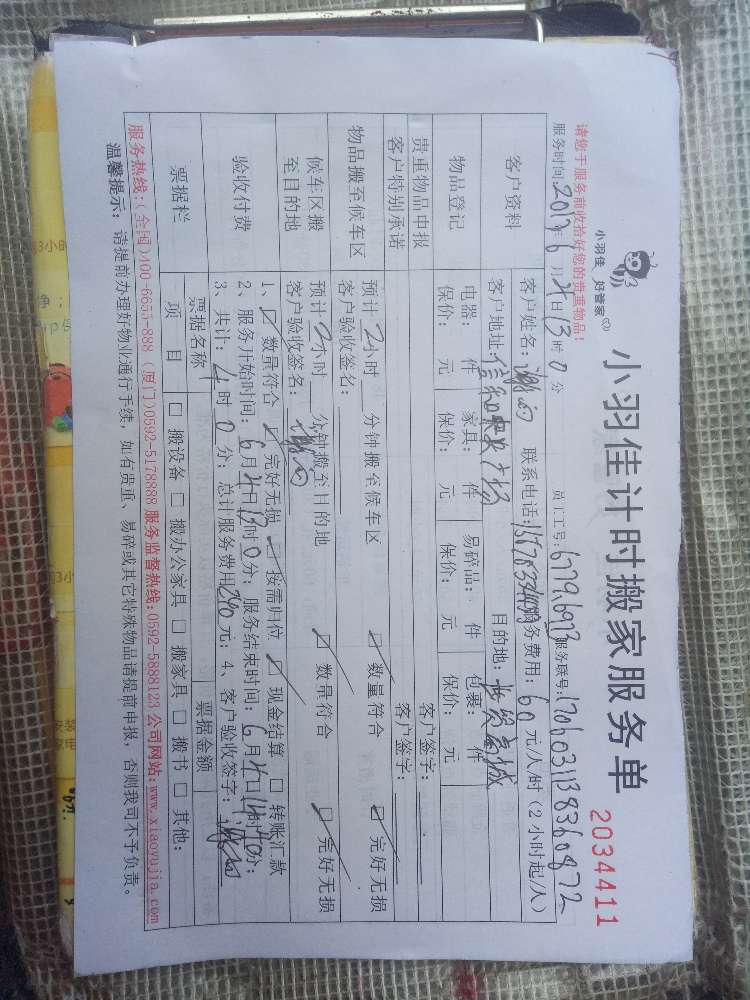 小羽佳 好管家
小羽佳计时搬家服务单
2034411
请您于服务前收拾好您的贵重物品:
服务时间:2017年6月21日13时0分 员工工号:6779.6973 服务联号:
客户资料
客户姓名:谢 联系电话: 服务费用:60元/人/时(2小时起/人)
客户地址:信和中央广场 目的地:
物品登记
电器: 件 家具: 件 易碎品: 件 包裹: 件
保价: 元 保价: 元 保价: 元 保价: 元
贵重物品申报 客户签字:
客户特别承诺 客户签字:
物品搬至候车区
预计2小时 分钟搬至候车区 ☑ 数量符合 ☑ 完好无损
客户验收签名:
候车区搬至目的地
预计2小时 分钟搬至目的地 ☑ 数量符合 ☑ 完好无损
客户验收签名:
验收付费
1、☑ 数量符合 ☑ 完好无损 ☑ 按需归位 ☑ 现金结算 ☐ 转账汇款
2、服务开始时间:6月21日13时0分;服务结束时间:6月21日 时 分;
3、共计:4时0分;总计服务费用240元;4、客户验收签字:
票据栏
票据名称 票据金额
项目 ☐ 搬设备 ☐ 搬办公家具 ☐ 搬家具 ☐ 搬书 ☐ 其他:
服务热线:(全国)400-6653-888 (厦门)0592-5178888 服务监督热线:0592-5888123 公司网站:www.xiaoyujia.com
温馨提示:请提前办理好物业通行手续,如有贵重、易碎或其它特殊物品请提前申报,否则我司不予负责。